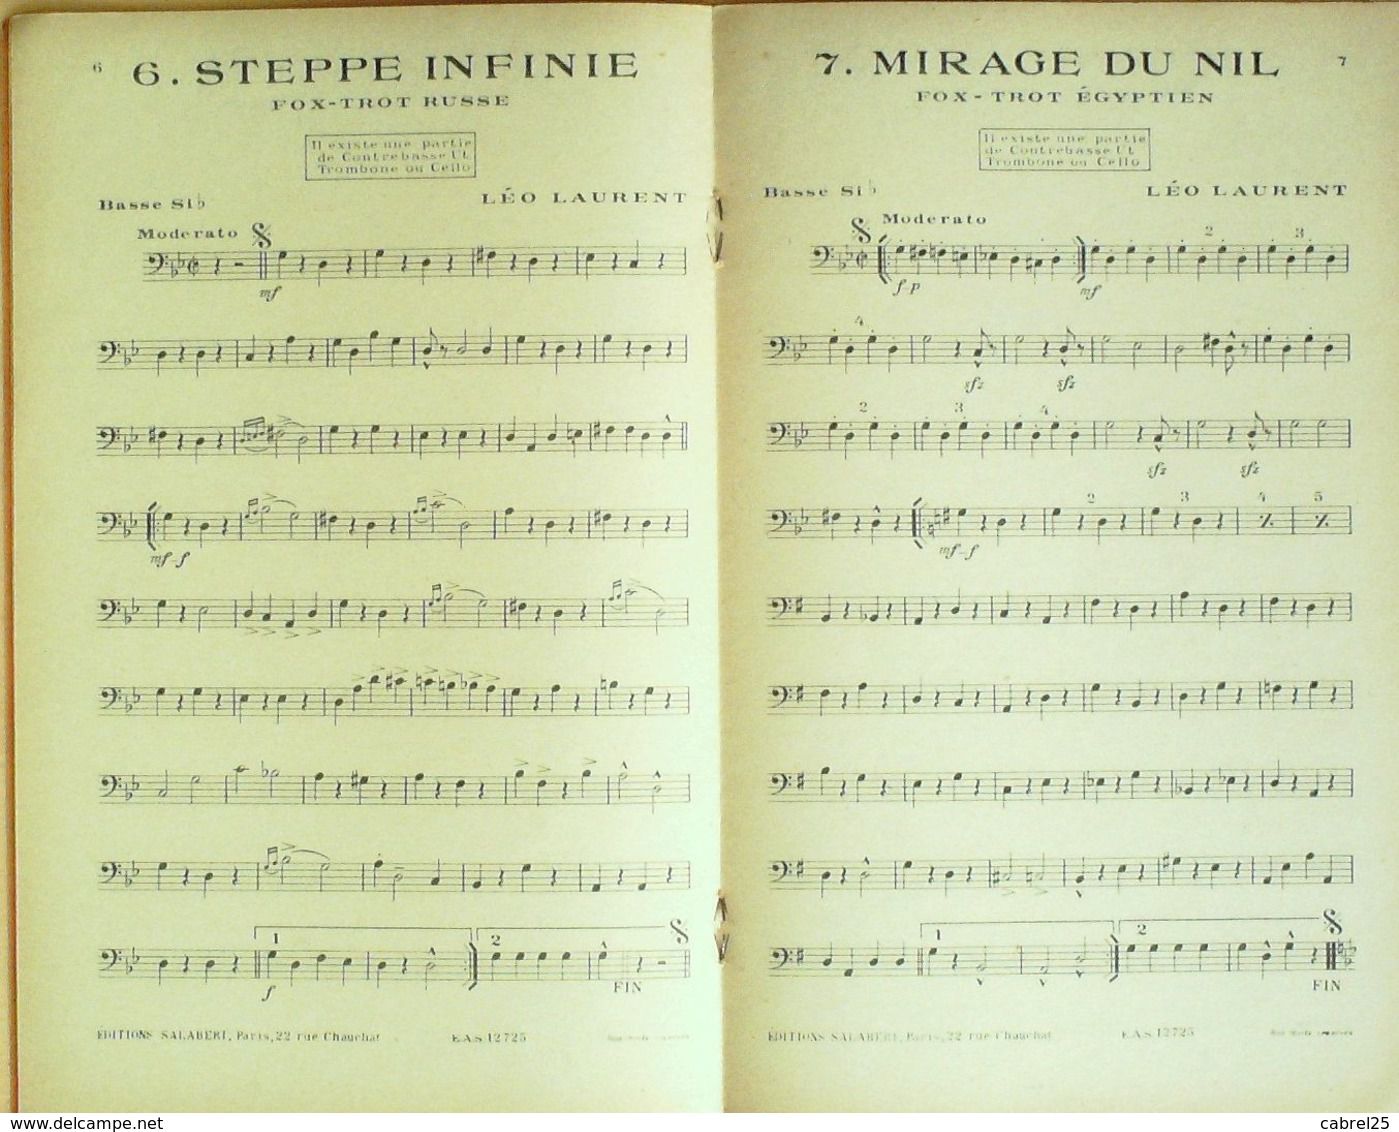 6
6. STEPPE INFINIE
FOX-TROT RUSSE
Il existe une partie
de Contrebasse Ut
Trombone ou Cello
Basse Si♭
LÉO LAURENT
Moderato
mf
mf-f
1
2
f
FIN
ÉDITIONS SALABERT, Paris, 22 rue Chauchat
E.A.S. 12725
7. MIRAGE DU NIL
7
FOX-TROT ÉGYPTIEN
Il existe une partie
de Contrebasse Ut
Trombone ou Cello
Basse Si♭
LÉO LAURENT
Moderato
2 3
f-p mf
4
sfz sfz
2 3 4
sfz sfz
2 3 4 5
mf-f
1
2
FIN
ÉDITIONS SALABERT, Paris, 22 rue Chauchat
E.A.S. 12725
https://www.delcampe.net
cabrel25